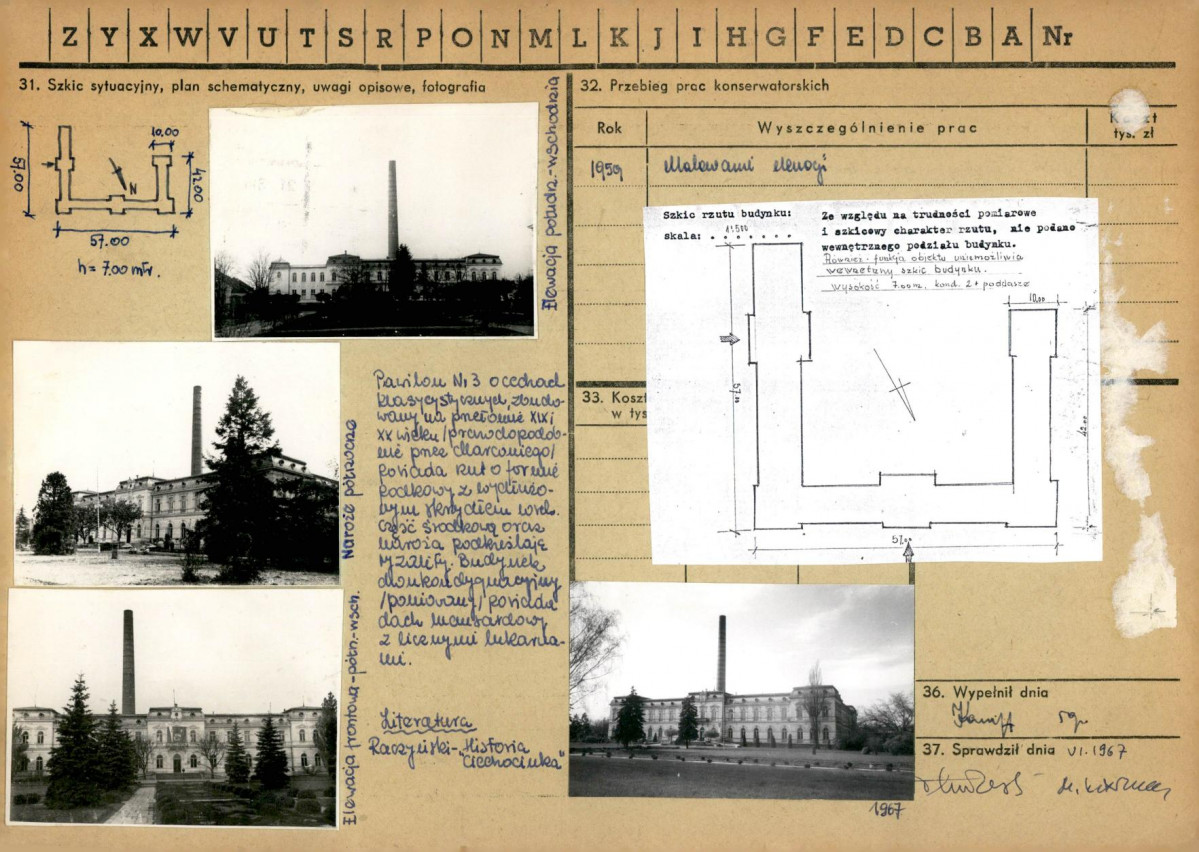 Z Y X W V U T S R P O N M L K J I H G F E D C B A Nr
31. Szkic sytuacyjny, plan schematyczny, uwagi opisowe, fotografia
57.00
10.00
42.00
N
57.00
h = 7.00 mtr.
Elewacja połudn.-wschodnia
Naroże północne
Elewacja frontowa - półn.-wsch.
Pawilon Nr 3 o cechach
klasycystycznych, zbudo-
wany na przełomie XIX i
XX wieku /prawdopodob-
nie przez Marconiego/
posiada rzut o formie
podkowy z wydłużo-
nym skrzydłem
Część środkową oraz
naroża podkreślają
ryzality. Budynek
dwukondygnacyjny
/posiada
dach mansardowy
z licznymi lukarna-
mi.
Literatura
Raczyński - "Historia
Ciechocinka"
32. Przebieg prac konserwatorskich
Rok
Wyszczególnienie prac
Koszt
tys. zł
1959
Malowanie
Szkic rzutu budynku:
skala: 1:500
Ze względu na trudności pomiarowe
i szkicowy charakter rzutu, nie podano
wewnętrznego podziału budynku.
Również funkcja obiektu uniemożliwia
wewnętrzny szkic budynku.
Wysokość 7.00m, kond. 2 + poddasze
10,00
57,00
42,00
57,00
33. Koszt
w tys
1967
36. Wypełnił dnia
37. Sprawdził dnia VI.1967